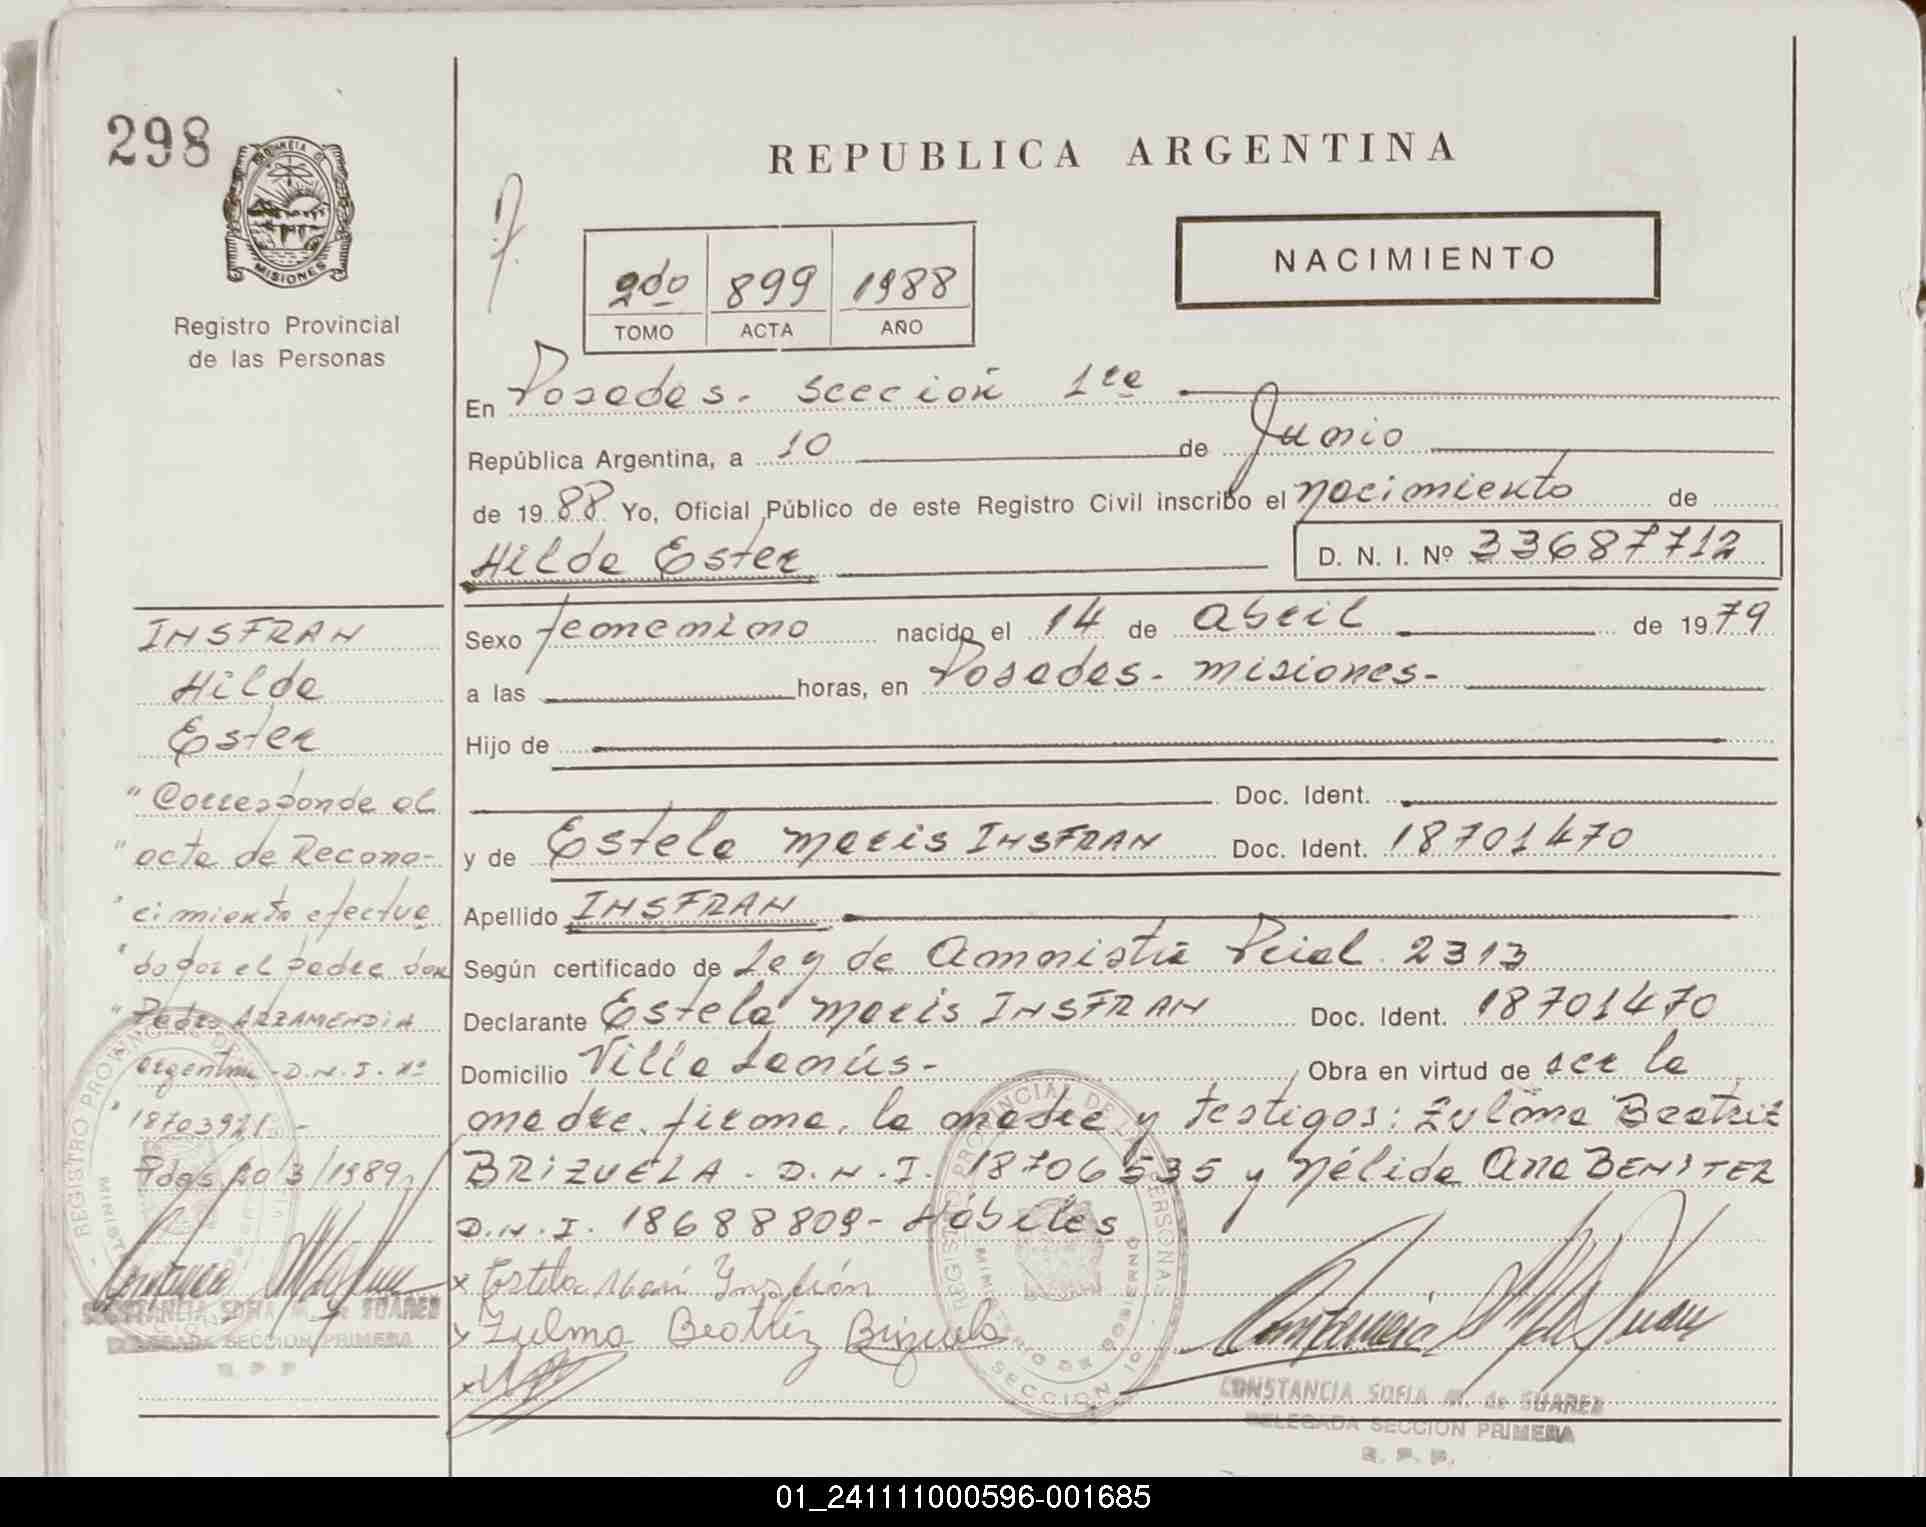 298
PROVINCIA DE
MISIONES
Registro Provincial
de las Personas
REPUBLICA ARGENTINA
2do 899 1988
TOMO ACTA AÑO
NACIMIENTO
En Posadas. Sección 1ra
República Argentina, a 10 de Junio
de 1988 Yo, Oficial Público de este Registro Civil inscribo el nacimiento de
Hilda Ester D. N. I. Nº 33687712
Sexo femenino nacido el 14 de Abril de 1979
a las horas, en Posadas - Misiones -
Hijo de
Doc. Ident.
y de Estela Maris INSFRAN Doc. Ident. 18701470
Apellido INSFRAN
Según certificado de Ley de Amnistía Pcial. 2313
Declarante Estela Maris INSFRAN Doc. Ident. 18701470
Domicilio Villa Lanús - Obra en virtud de ser la
madre. firma, la madre y testigos: Zulma Beatriz
BRIZUELA. D.N.I. 18706535 y Nélida Ana BENITEZ
D.N.I. 18688809 - Hábiles
x Estela Insfrán
x Zulma Beatriz Brizuela
x
CONSTANCIA SOFIA M. de SUAREZ
DELEGADA SECCION PRIMERA
R. P. P.
REGISTRO PROVINCIAL DE LAS PERSONAS
MINISTERIO DE GOBIERNO
SECCION 1ª
INSFRAN
Hilda
Ester
"Corresponde al
"acta de Recono-
"cimiento efectua
"do por el padre don
"Pedro ARZAMENDIA
argentino - D.N.I. Nº
"18703921 -
Pdas 20/3/1989
CONSTANCIA SOFIA M. de SUAREZ
DELEGADA SECCION PRIMERA
R. P. P.
01_241111000596-001685